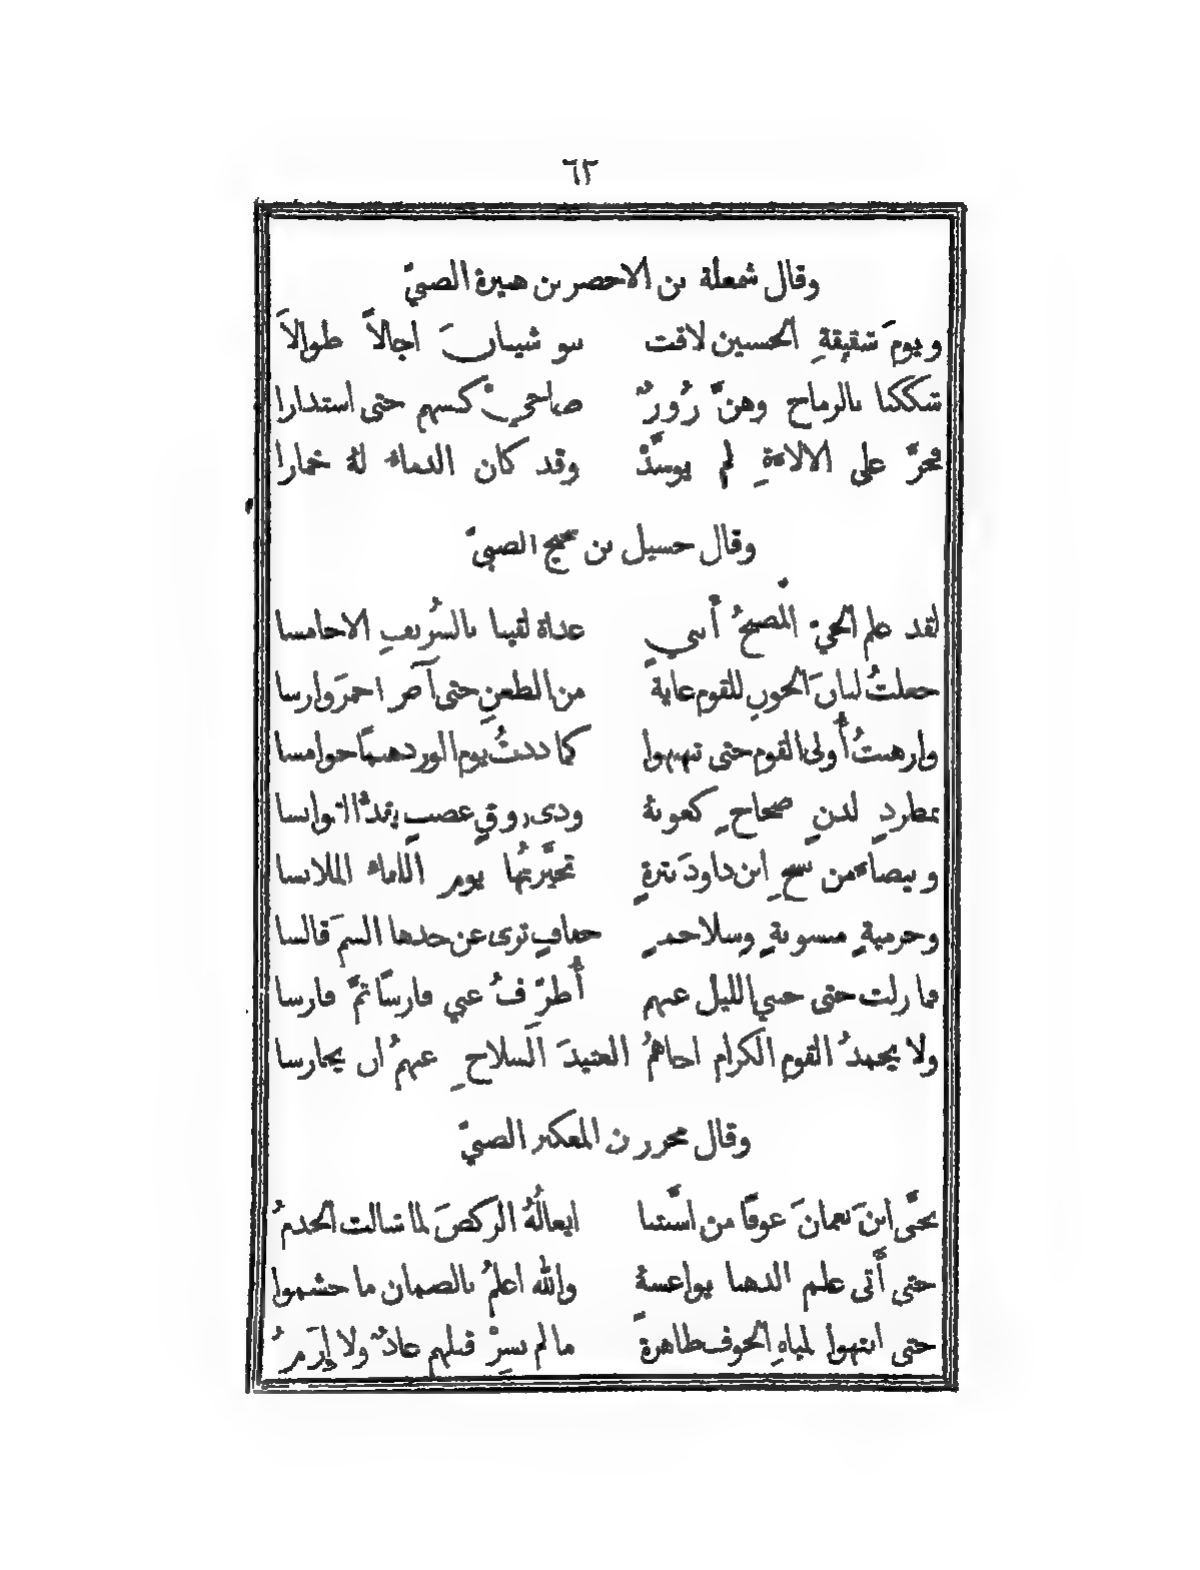 ٦٢
وقال شمعلة بن الاخضر بن هبيرة الضبيّ
ويومَ شقيقةِ الحسنين لاقت بنو شيبانَ اجالاً طوالاَ
شككنا بالرماح وهنَّ زُورٌ صماخيْ كبشهم حتى استدارا
فخرَّ على الالاءةِ لم يوسدَّْ وقد كان الدماءُ لهُ خمارا
وقال حسيل بن سجيح الضبيّ
لقد علم الحيّ المصبحُ أنني غداة لقينا بالشُريفِ الاحامسا
جعلتُ لبانَ الجونِ للقوم غايةً من الطعنِ حتى آض احمرَ وارسا
وارهبتُ أُولى القوم حتى تنهنهوا كما ذدتُ يوم الورد هيمًا خوامسا
بمطردٍ لدنٍ صحاحٍ كعوبهُ وذى رونقٍ عضبٍ يقدُّ القوانسا
وبيضاءَ من نسجِ ابن داودَ نثرةٍ تخيَّرتُها يوم اللقاءُ الملابسا
وحرميةٍ منسوبةٍ وسلاجمٍ خفافٍ ترى عن حدها السمَ قالسا
فما زلت حتى جنني الليل عنهم أُطرّفُ عني فارسًا ثمَّ فارسا
ولا يحمدُ القوم الكرام اخاهمُ العتيدَ السلاحِ عنهمُ ان يمارسا
وقال محرز بن المعكبر الضبيّ
نجَّى ابنَ نعمانَ عوفًا من اسنَّتنا ايغالُهُ الركضَ لما شالت الجذمُ
حتى أَتى علم الدهنا يواعسهُ والله اعلمُ بالصمان ما جشموا
حتى انتهوا لمياهِ الجوف ظاهرةً ما لم تسرْ قبلهم عادٌ ولا إِرَمُ